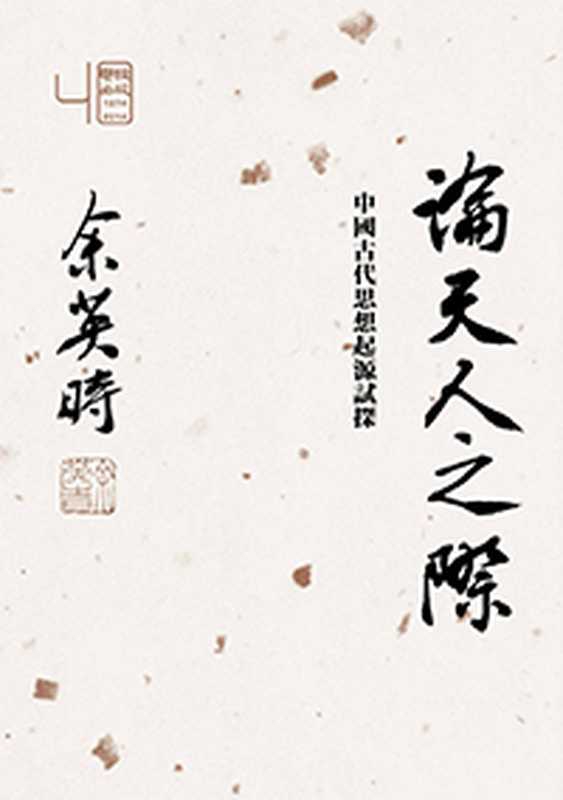 論天人之際
中國古代思想起源試探
余英時